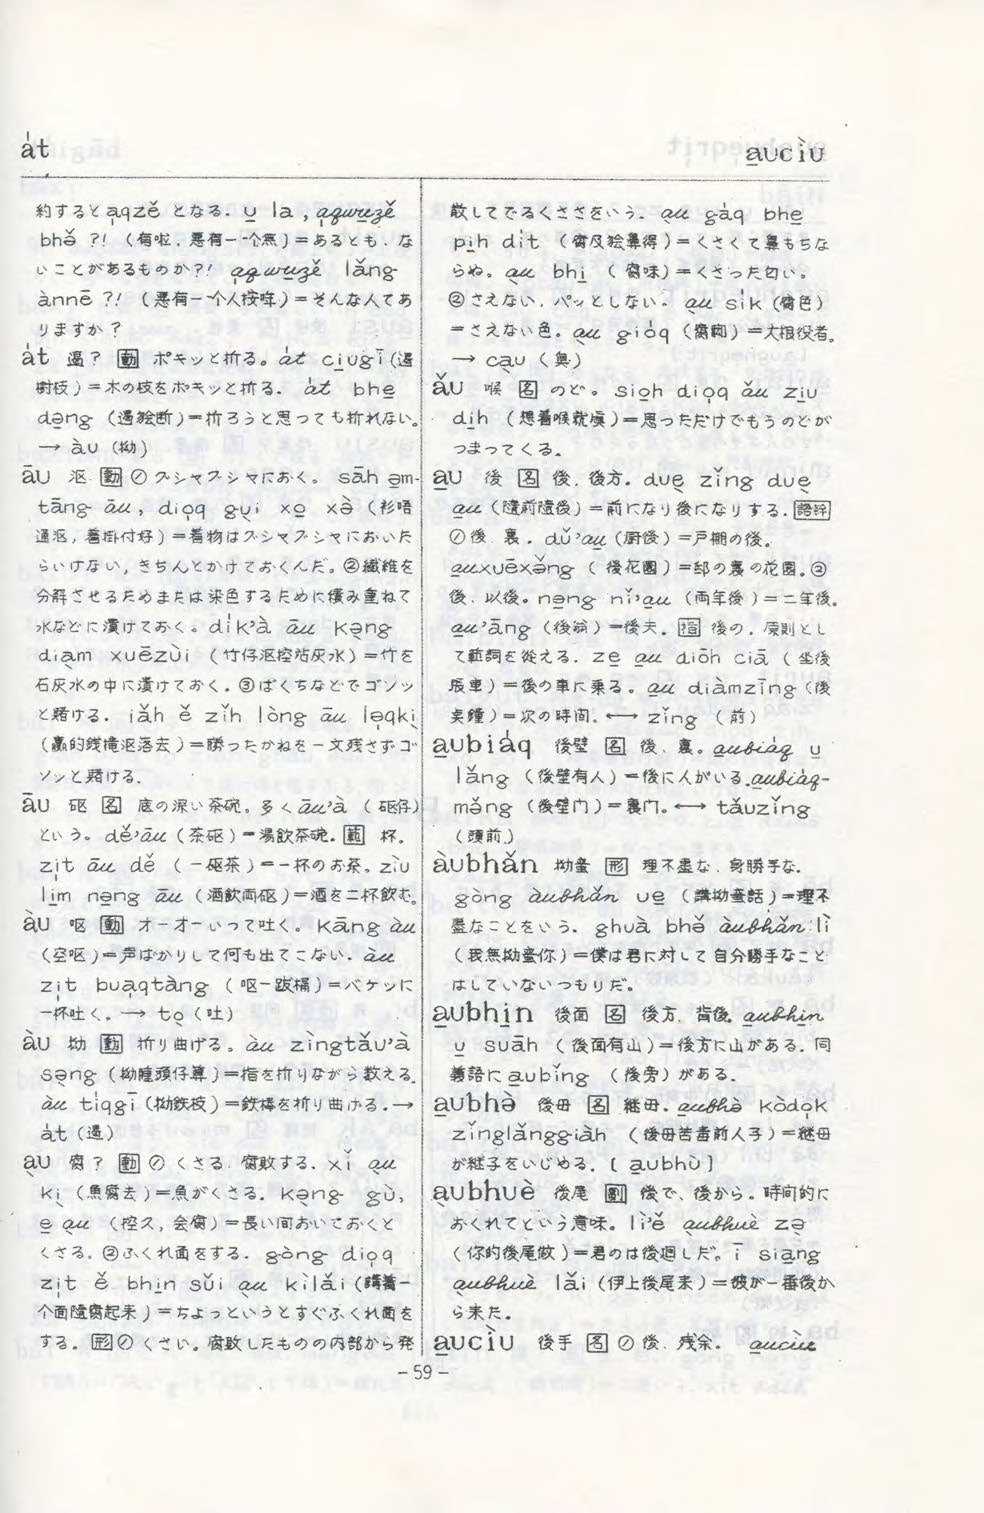 a̍t
a̱ucìu
約するとa̩qzě となる. u̱ la , a̩qwu̱zě
bhə̌ ?! (有啦, 悪有一个無)=あるとも. な
いことがあるものか?! a̩qwu̱zě lăng
ànnē ?! (悪有一个人按咩)=そんな人であ
りますか?
a̍t 遏? 動 ポキッと折る。 a̍t ci̩ugī (遏
樹枝)=木の枝をポキッと折る. a̍t bhe̱
de̱ng (遏絵断)=折ろうと思っても折れない。
→ àu (拗)
āu 漚 動 ① グシャグシャにおく。 sāh e̱m-
tāng āu, dio̩q gu̩i xo̱ xə̀ (衫唔
通漚, 着掛付好)=着物はグシャグシャにおいた
らいけない, きちんとかけておくんだ。②繊維を
分解させるためまたは染色するために積み重ねて
水などに漬けておく。di̍k'à āu kəng
dia̩m xuēzùi (竹仔漚控站灰水)=竹を
石灰水の中に漬けておく. ③ばくちなどでゴソッ
と賭ける. iǎh ě zǐh lòng āu lə̩qki̩
(贏的銭攏漚落去)=勝ったかねを一文残さずゴ
ソッと賭ける.
āu 甌 名 底の深い茶碗。多く āu'à (甌仔)
という。dě'āu (茶甌)=湯飲茶碗. 範 杯.
zi̍t āu dě (一甌茶)=一杯のお茶. zìu
li̱m nə̱ng āu (酒飲両甌)=酒を二杯飲む。
àu 呕 動 オーオーいって吐く。kāng àu
(空呕)=声ばかりして何も出てこない. àu
zi̍t bua̩qtàng (呕一跋桶)=バケツに
一杯吐く。→ to̩ (吐)
àu 拗 動 折り曲げる。àu zìngtǎu'à
sə̩ng (拗腫頭仔算)=指を折りながら数える.
àu ti̩qgī (拗鉄枝)=鉄棒を折り曲げる. →
a̍t (遏)
a̩u 腐? 動 ① くさる. 腐敗する. xǐ a̩u
ki̩ (魚腐去)=魚がくさる. kəng gù,
e̱ a̩u (控久, 会腐)=長い間おいておくと
くさる. ②ふくれ面をする. gòng dio̩q
zi̍t ě bhi̱n sǔi a̩u kìlǎi (講着一
个面随腐起来)=ちょっというとすぐふくれ面を
する。形① くさい。腐敗したものの内部から発
散してでるくささをいう. a̩u gáq bhe̱
pi̱h di̍t (腐及絵鼻得)=くさくて鼻もちな
らぬ。a̩u bhi̱ (腐味)=くさった匂い。
②さえない, パッとしない。a̩u sı̍k (腐色)
=さえない色。a̩u gióq (腐脚)=大根役者。
→ ca̩u (臭)
ǎu 喉 名 のど。sio̱h dio̩q ǎu zi̱u
di̱h (想着喉就滇)=思っただけでもうのどが
つまってくる。
a̱u 後 名 後. 後方. due̩ zǐng due̩
a̱u (隨前隨後)=前になり後になりする. 語幹
①後. 裏. dǔ'a̱u (厨後)=戸棚の後。
a̱uxuēxə̌ng (後花園)=邸の裏の花園。②
後. 以後。nə̱ng nǐ'a̱u (両年後)=二年後。
a̱u'āng (後翁)=後夫. 指 後の. 原則とし
て範詞を従える. ze̱ a̱u diōh ciā (坐後
張車)=後の車に乗る。a̱u diàmzīng (後
点鐘)=次の時間。←→ zǐng (前)
a̱ubiáq 後壁 名 後. 裏。a̱ubiáq u̱
lǎng (後壁有人)=後に人がいる. a̱ubiáq-
mə̌ng (後壁门)=裏门。←→ tǎuzǐng
(頭前)
àubhǎn 拗蛮 形 理不盡な, 身勝手な.
gòng àubhǎn ue̱ (講拗蛮話)=理不
盡なことをいう. ghuà bhə̌ àubhǎn lì
(我無拗蛮你)=僕は君に対して自分勝手なこと
はしていないつもりだ。
a̱ubhi̱n 後面 名 後方. 背後. a̱ubhi̱n
u̱ suāh (後面有山)=後方に山がある. 同
義語に a̱ubǐng (後旁)がある.
a̱ubhə̀ 後母 名 継母. a̱ubhə̀ kòdo̍k
zǐnglǎnggiàh (後母苦毒前人子)=継母
が継子をいじめる. [ a̱ubhù ]
a̱ubhuè 後尾 副 後で, 後から。時间的に
おくれてという意味。lì'ě a̱ubhuè zə̩
(你的後尾做)=君のは後廻しだ。ī sia̱ng
a̱ubhuè lǎi (伊上後尾来)=彼が一番後か
ら来た。
a̱ucìu 後手 名 ① 後. 残余. a̱ucìu
- 59 -